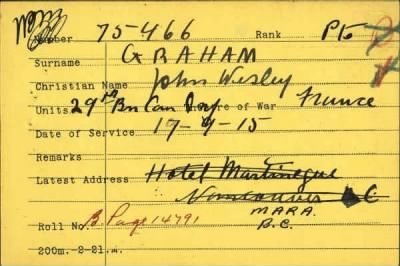 Number 75466 Rank Pte
Surname GRAHAM
Christian Name John Wesley
Units 29th Bn Can Inf Theatre of War France
Date of Service 17-9-15
Remarks
Latest Address Hotel Martinique
Vancouver BC
MARA.
B.C.
Roll No. B. Page 14791
200m.-2-21.m.